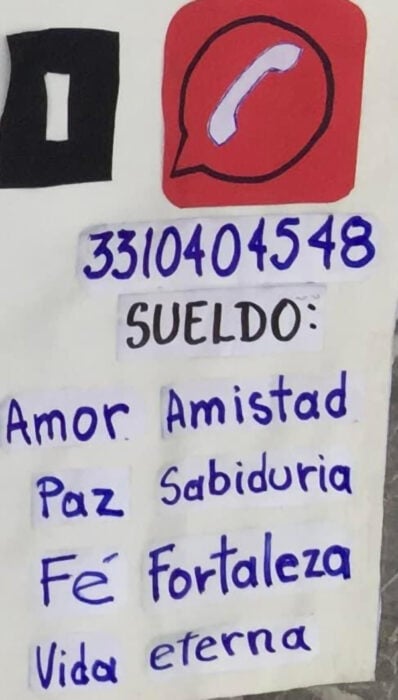 I
3310404548
SUELDO:
Amor Amistad
Paz Sabiduria
Fé Fortaleza
Vida eterna